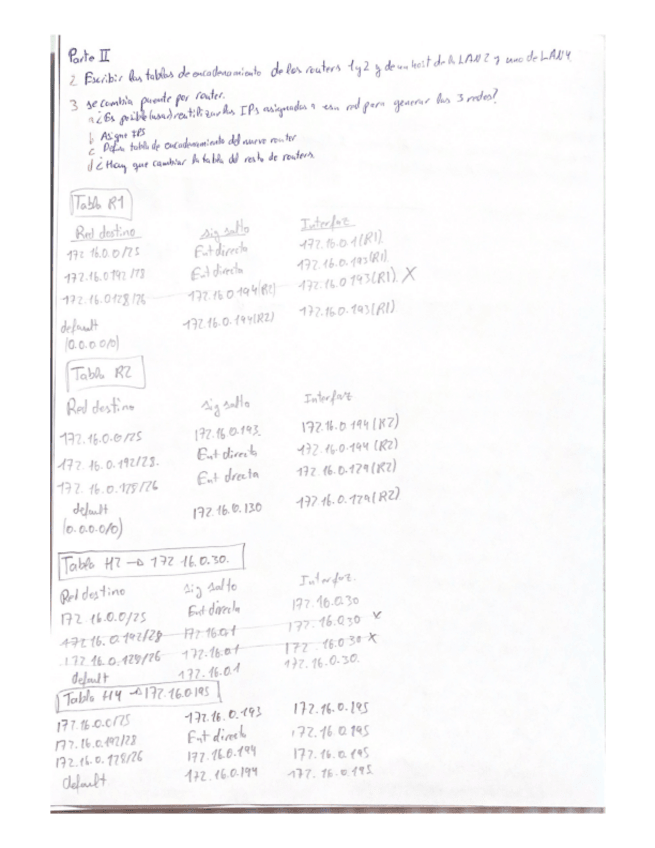 Parte II
2 Escribir las tablas de encadenamiento de los routers 1 y 2 y de un host de la LAN 2 y uno de LAN4
3 se cambia puente por router.
a ¿Es posible (usar) reutilizar las IPs asignadas a esa red para generar las 3 redes?
b Asigne IPS
c Defina tabla de encadenamiento del nuevo router
d ¿Hay que cambiar la tabla del resto de routers
Tabla R1
Red destino sig salto Interfaz
172.16.0.0/25 Ent directa 172.16.0.1(R1)
172.16.0.192/28 Ent directa 172.16.0.193(R1)
172.16.0.128/26 172.16.0.194(R2) 172.16.0.193(R1) X
default 172.16.0.194(R2) 172.16.0.193(R1)
(0.0.0.0/0)
Tabla R2
Red destino sig salto Interfaz
172.16.0.0/25 172.16.0.193. 172.16.0.194(R2)
172.16.0.192/28. Ent directa 172.16.0.194(R2)
172.16.0.128/26 Ent directa 172.16.0.129(R2)
default 172.16.0.130 172.16.0.129(R2)
(0.0.0.0/0)
Tabla H2 → 172.16.0.30.
Red destino sig salto Interfaz.
172.16.0.0/25 Ent directa 172.16.0.30
172.16.0.192/28 172.16.0.1 172.16.0.30 x
172.16.0.128/26 172.16.0.1 172.16.0.30 x
default 172.16.0.1 172.16.0.30.
Tabla H4 → 172.16.0.195
172.16.0.0/25 172.16.0.193 172.16.0.195
172.16.0.192/28 Ent directa 172.16.0.195
172.16.0.128/26 172.16.0.194 172.16.0.195
default 172.16.0.194 172.16.0.195